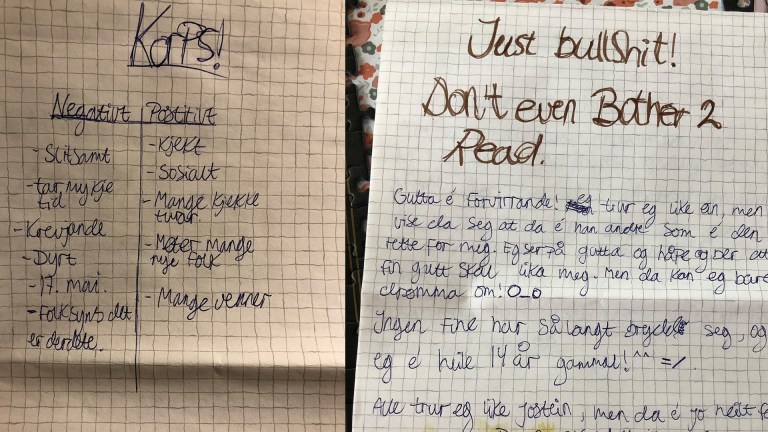 Korps!
Negativt
Positivt
- Slitsamt
- tar mykje
tid
- Krevjande
- Dyrt
- 17. mai.
- Folk syns det
er
- Kjekt
- Sosialt
- Mange kjekke
turar.
- Møter mange
nye folk
- Mange venner
Just bullshit!
Don't even Bother 2
Read.
Gutta é Forvirrande! trur eg like ein, men
vise da seg at da é han andre som é den
rette For meg. Eg ser på gutta og håpe og ber att
Ein gutt skal lika meg. Men da kan eg bare
drømma om! O_o
Ingen Fine har så langt seg, og
eg é heile 14 år gammal! ^^ =/
Alle trur eg like Jostein, men da é jo heilt